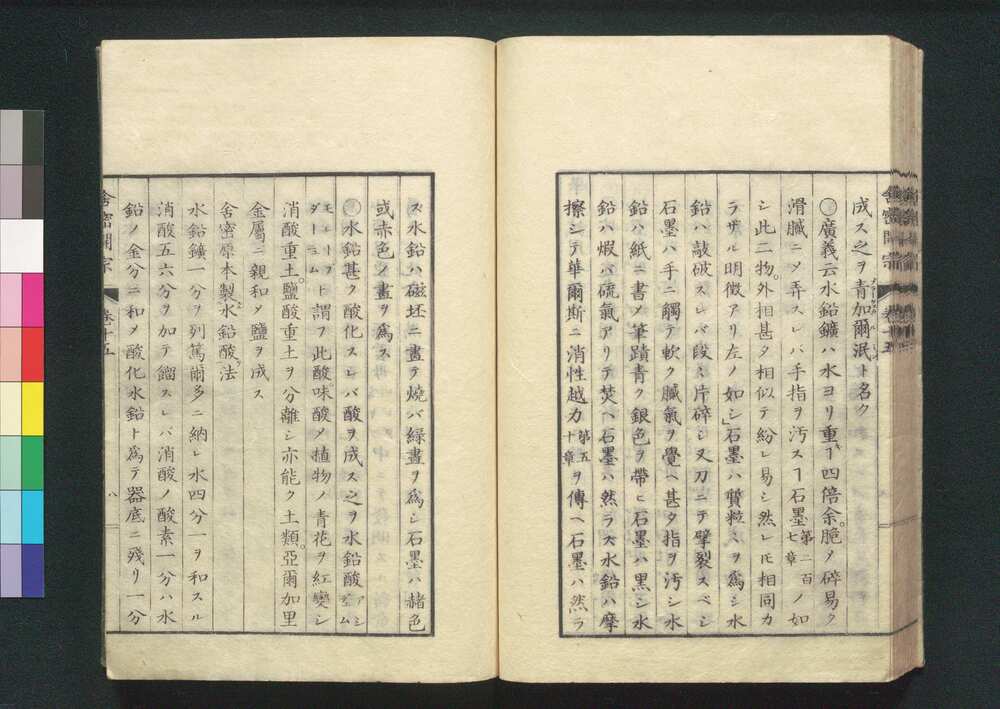 成ス之ヲ青加爾泯ト名ク
廣義云水鉛鑛ハ水ヨリ重ヿ四倍余脆メ碎易ク
滑膩ニメ弄スレバ手指ヲ汚スヿ石墨第二百七章ノ如
シ此二物外相甚タ相似テ紛レ易シ然レ𪜈相同カ
ラザル明徴アリ左ノ如シ」石墨ハ質粒々ヲ爲シ水
鉛ハ敲破スレバ段々片碎シ又刀ニテ擘裂スベシ
石墨ハ手ニ觸テ軟ク膩氣ヲ覺ヘ甚タ指ヲ汚シ水
鉛ハ紙ニ書メ筆蹟青ク銀色ヲ帶ヒ石墨ハ黒シ水
鉛ハ煆バ硫氣アリテ焚ヘ石墨ハ然ラス水鉛ハ摩
擦シテ華爾斯ニ消性越力第五十章ヲ傳ヘ石墨ハ然ラ
舎密開宗 巻十五
ス水鉛ハ磁坯ニ畫テ燒バ緑畫ヲ爲シ石墨ハ赭色
或赤色ノ畫ヲ爲ス
水鉛甚ク酸化スレバ酸ヲ成ス之ヲ水鉛酸
ト謂フ此酸味酸メ植物ノ青花ヲ紅變シ
消酸重土鹽酸重土ヲ分離シ亦能ク土類亞爾加里
金屬ニ親和メ鹽ヲ成ス
舎密原本製水鉛酸法
水鉛鑛一分ヲ列篤爾多ニ納レ水四分一ヲ和スル
消酸五六分ヲ加テ餾スレバ消酸ノ酸素一分ハ水
鉛ノ金分ニ和メ酸化水鉛ト爲テ器底ニ殘リ一分
舎密開宗 巻十五 八